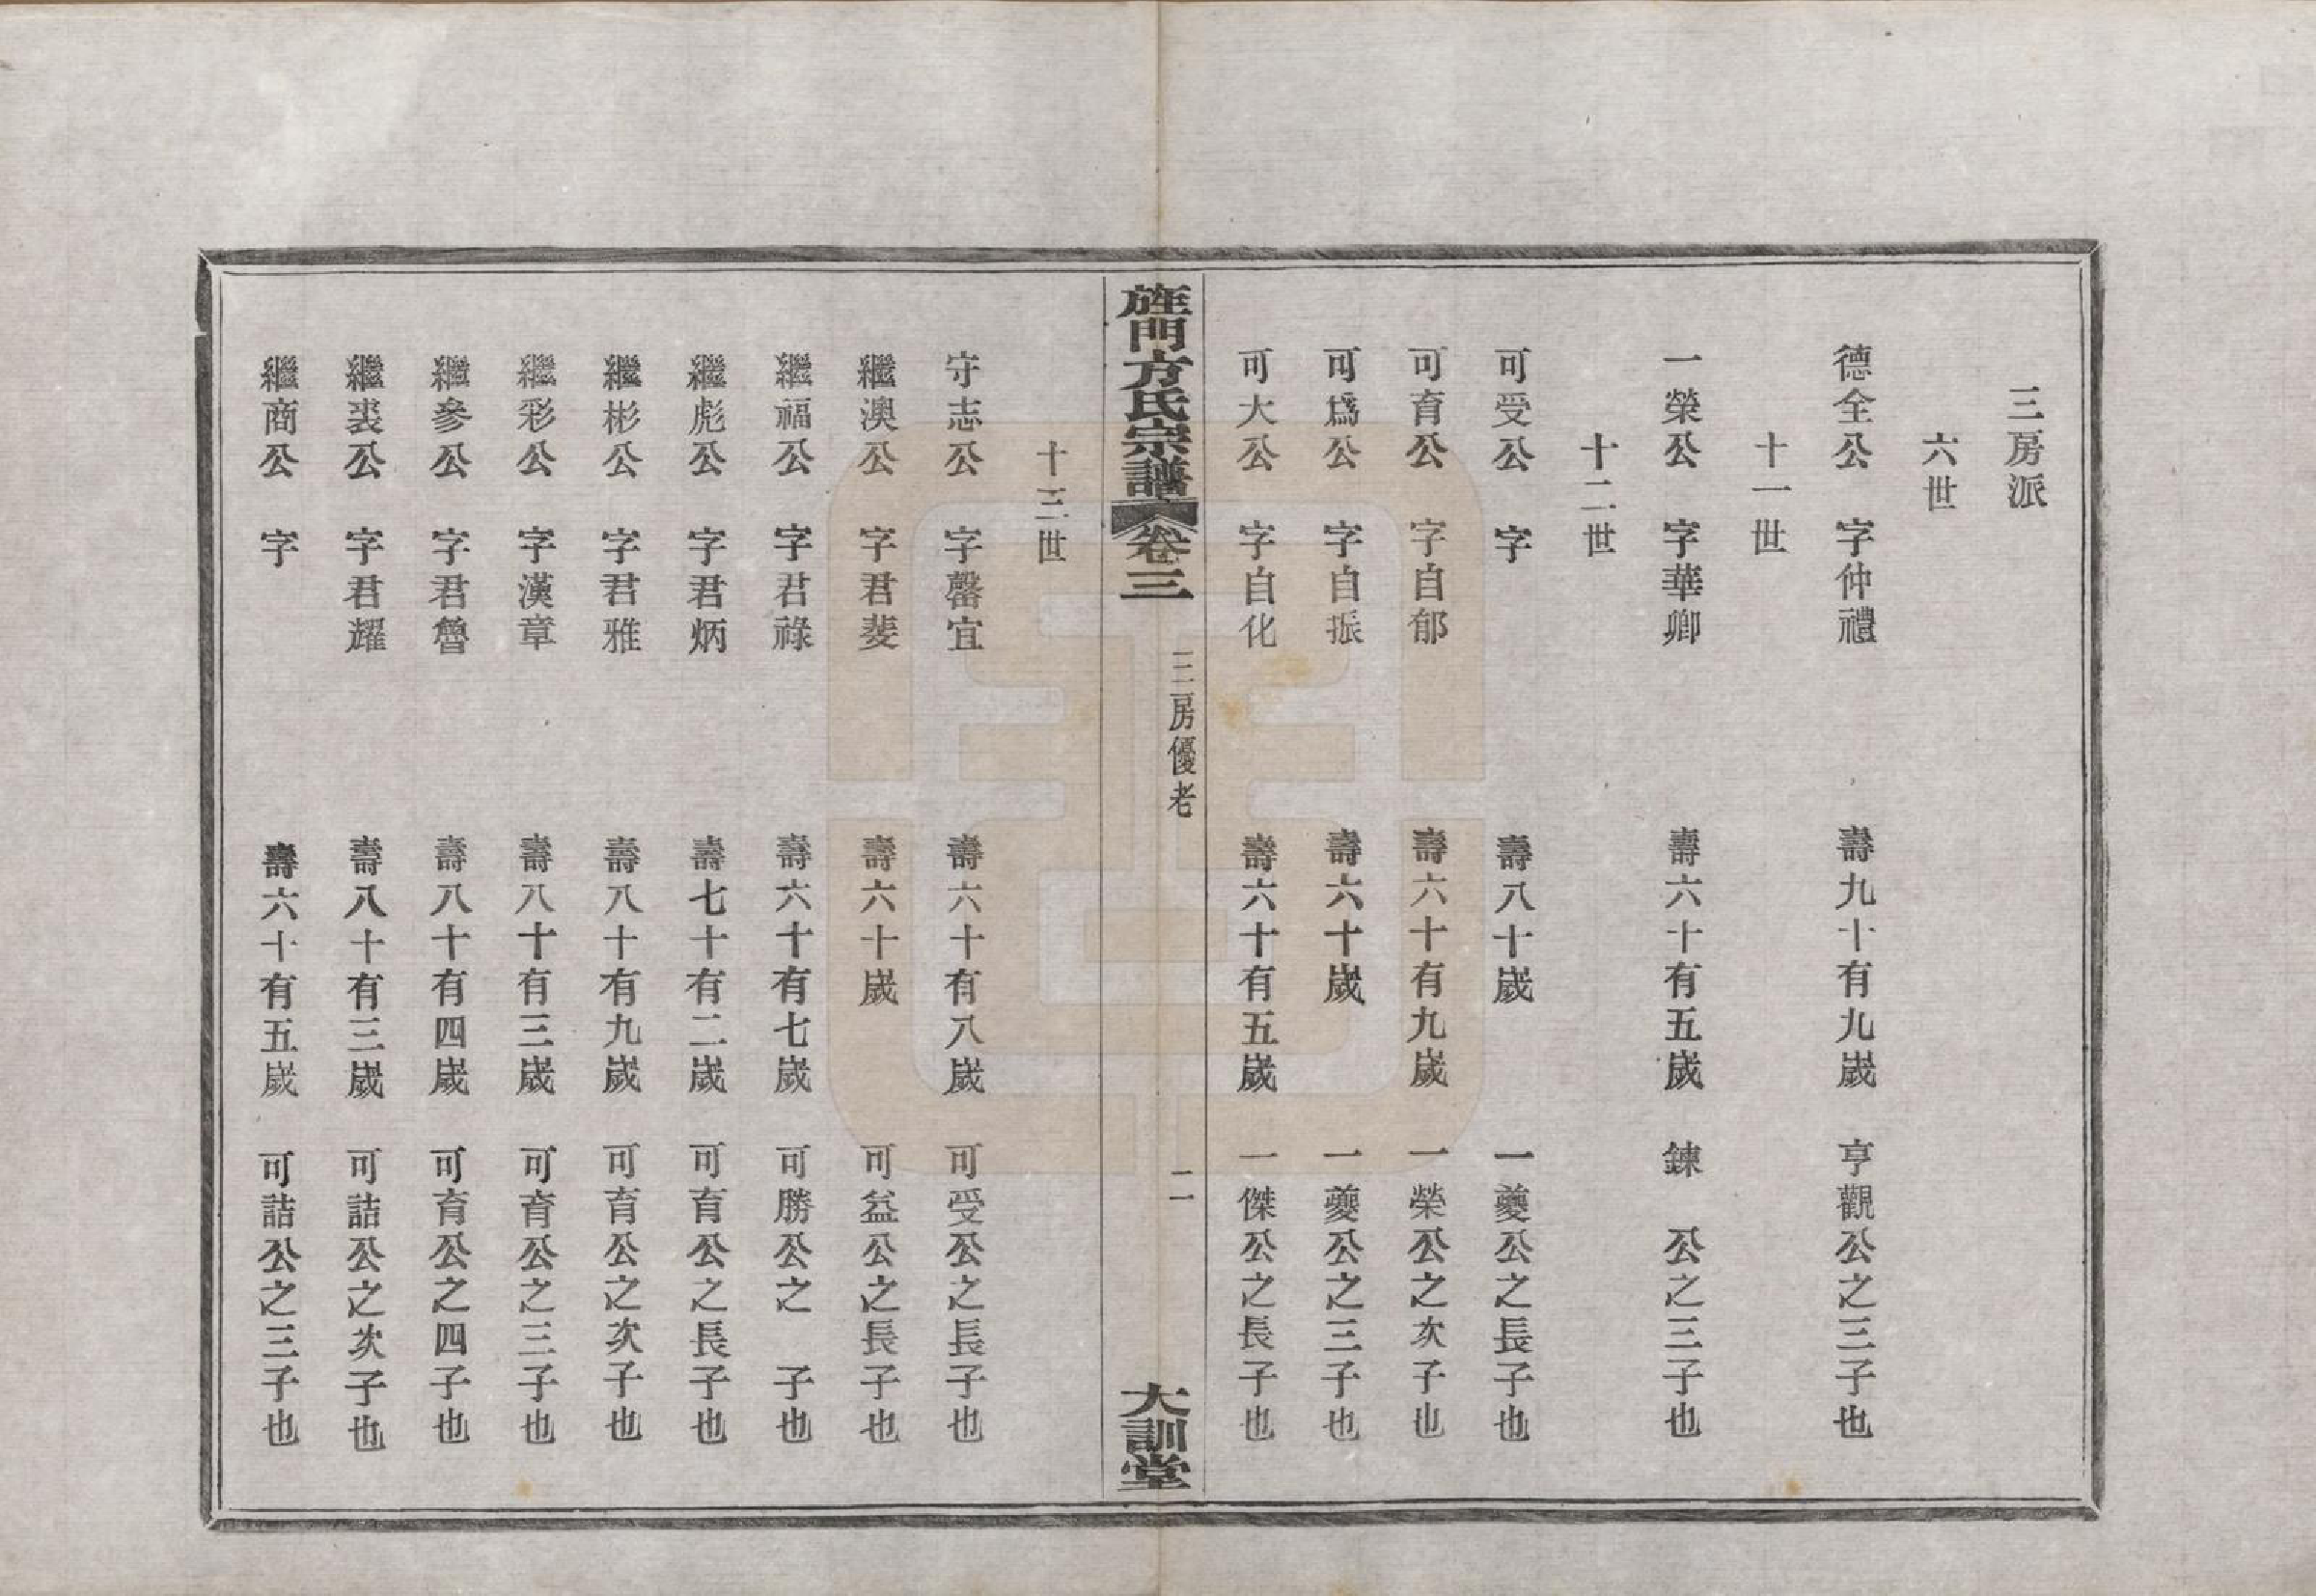 三房派
六世
德全公 字仲禮 壽九十有九歲 亨觀公之三子也
十一世
一榮公 字華卿 壽六十有五歲 鍊 公之三子也
十二世
可受公 字 壽八十歲 一夔公之長子也
可育公 字自郁 壽六十有九歲 一榮公之次子也
可爲公 字自振 壽六十歲 一夔公之三子也
可大公 字自化 壽六十有五歲 一傑公之長子也
旌門方氏宗譜 卷三 三房優老 二 大訓堂
十三世
守志公 字馨宜 壽六十有八歲 可受公之長子也
繼澳公 字君斐 壽六十歲 可益公之長子也
繼福公 字君祿 壽六十有七歲 可勝公之 子也
繼彪公 字君炳 壽七十有二歲 可育公之長子也
繼彬公 字君雅 壽八十有九歲 可育公之次子也
繼彩公 字漢章 壽八十有三歲 可育公之三子也
繼參公 字君魯 壽八十有四歲 可育公之四子也
繼裘公 字君耀 壽八十有三歲 可詰公之次子也
繼商公 字 壽六十有五歲 可詰公之三子也